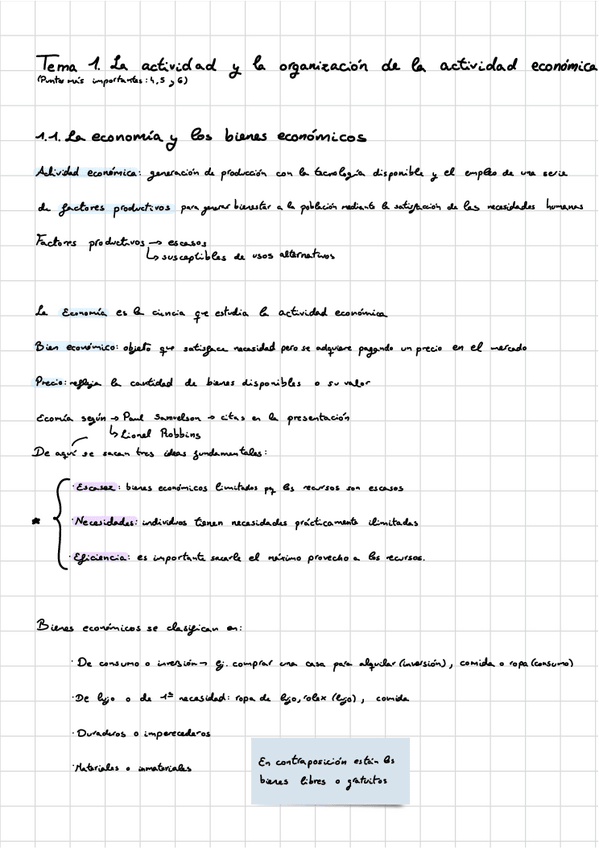 Tema 1. La actividad y la organización de la actividad económica
(Puntos más importantes: 4, 5 y 6)
1.1. La economía y los bienes económicos
Actividad económica: generación de producción con la tecnología disponible y el empleo de una serie
de factores productivos para generar bienestar a la población mediante la satisfacción de las necesidades humanas
Factores productivos → escasos
↳ susceptibles de usos alternativos
La Economía es la ciencia que estudia la actividad económica
Bien económico: objeto que satisface necesidad pero se adquiere pagando un precio en el mercado
Precio: refleja la cantidad de bienes disponibles o su valor
Ecomía según → Paul Samuelson → citas en la presentación
↳ Lionel Robbins
De aquí se sacan tres ideas fundamentales:
· Escasez: bienes económicos limitados pq los recursos son escasos
* · Necesidades: individuos tienen necesidades prácticamente ilimitadas
· Eficiencia: es importante sacarle el máximo provecho a los recursos.
Bienes económicos se clasifican en:
· De consumo o inversión → ej. comprar una casa para alquilar (inversión), comida o ropa (consumo)
· De lujo o de 1ª necesidad: ropa de lujo, rolex (lujo), comida
· Duraderos o imperecederos
· Materiales o inmateriales
En contraposición están los
bienes libres o gratuitos